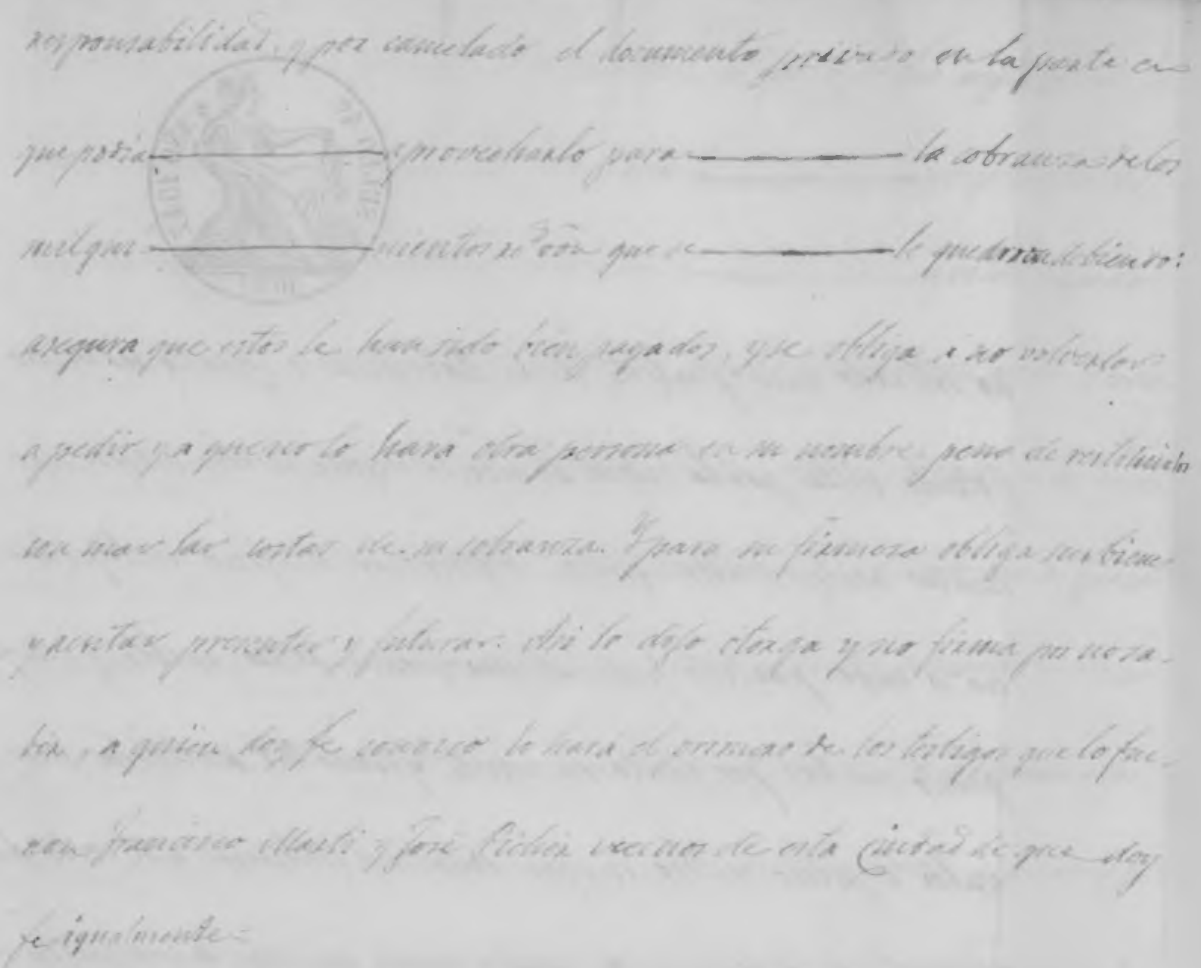 responsabilidad, y por cancelado el documento privado en la parte en
que podia aprovecharlo para la cobranza de los
mil qui nientos r.^s von que se le quedaron debiendo:
asegura que estos le han sido bien pagados, y se obliga a no volverlos
a pedir y a que no lo hara otra persona en su nombre pena de restituirlos
con mas las costas de su cobranza. Y para su firmeza obliga sus bienes
y rentas presentes y futuras. Asi lo dijo otorga y no firma por no sa-
ber, a quien doy fe conozco lo hara el primero de los testigos que lo fue-
ron Francisco Marti y José vecinos de esta Ciudad de que doy
fe igualmente=